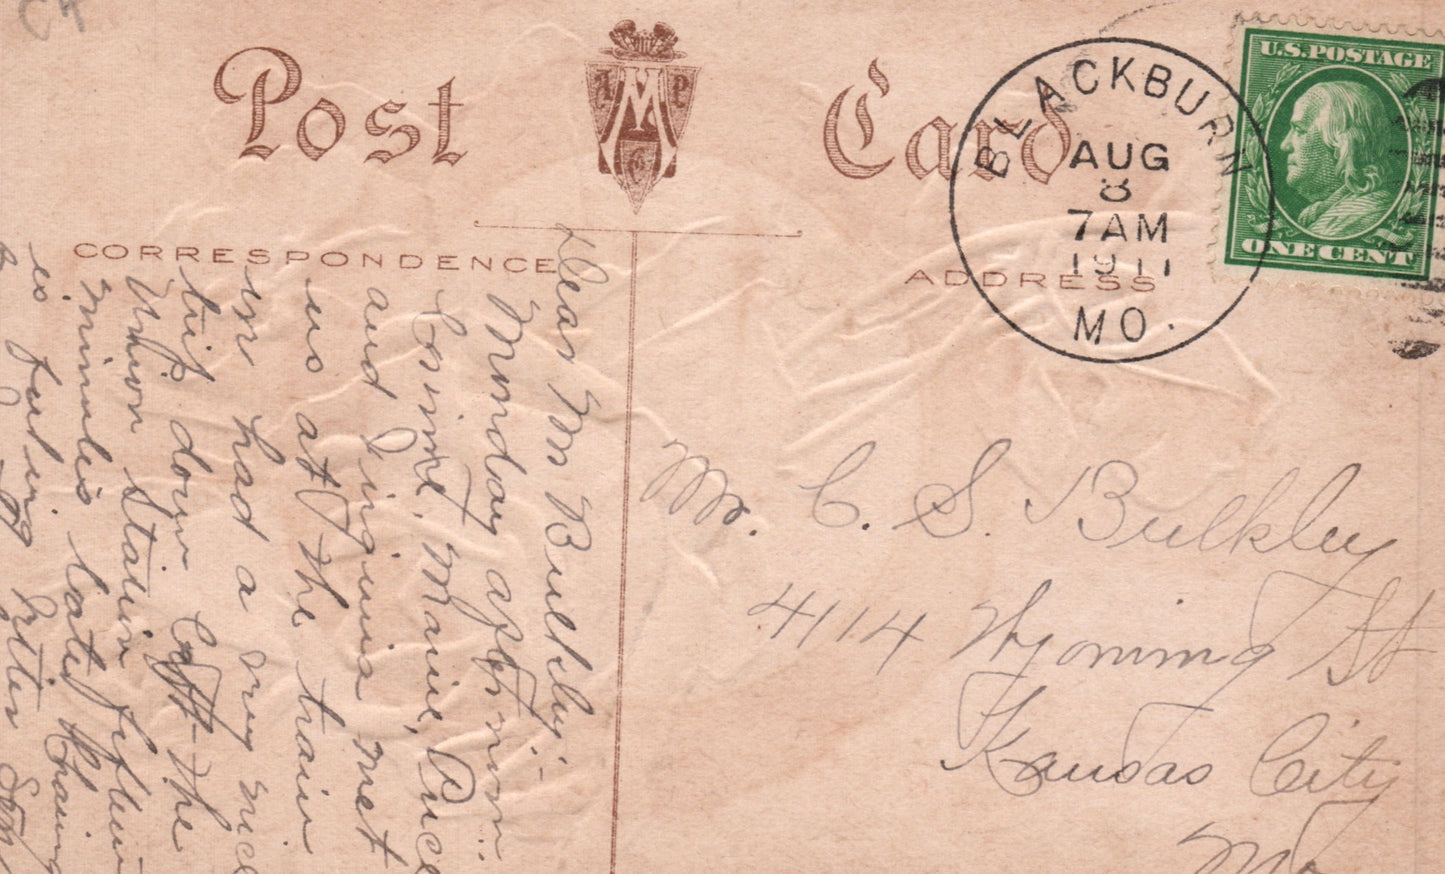 Post Card
A M P C
CORRESPONDENCE
ADDRESS
BLACKBURN
AUG
8
7AM
1911
MO.
U.S. POSTAGE
ONE CENT
Mr. C. S. Bulkley
4114 Wyoming St
Kansas City
Mo
Dear Mr Bulkley:-
Monday afternoon:
Marie,
and Virginia met
us at the train
had a very nice
trip down Left the
Union Station fifteen
minutes late.
is feeling better